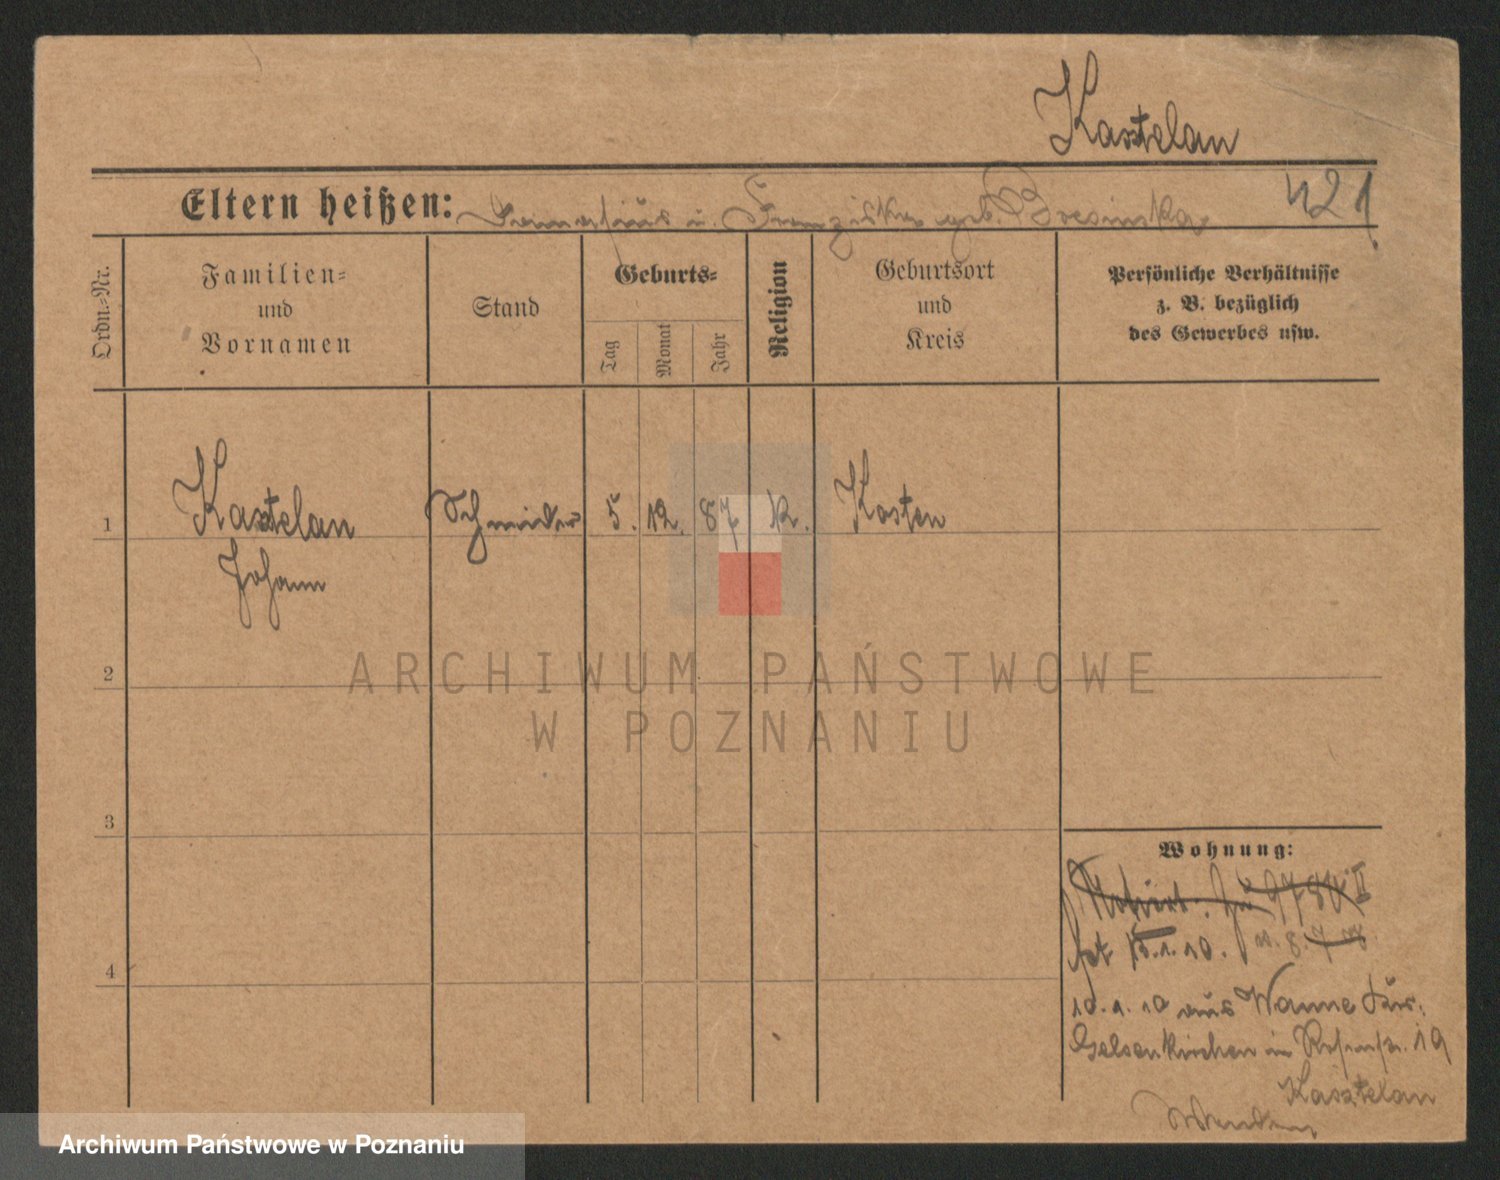 Kasztelan
Eltern heißen: u. Franziska geb. Bresinska
421
Ordn.-Nr.
Familien-
und
Vornamen
Stand
Geburts-
Tag
Monat
Jahr
Religion
Geburtsort
und
Kreis
Persönliche Verhältnisse
z. B. bezüglich
des Gewerbes usw.
1
Kasztelan
Johann
Schneider
5.
12.
87
k.
Kosten
2
3
4
Wohnung:
10.1.10 aus Wanne
Gelsenkirchen in 19
Kasztelan
ARCHIWUM PAŃSTWOWE
W POZNANIU
Archiwum Państwowe w Poznaniu